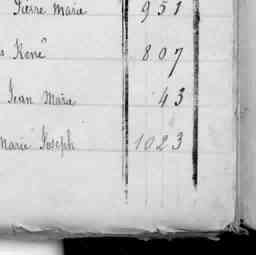 Pierre Marie 951
René 807
Jean Marie 43
Marie Joseph 1023